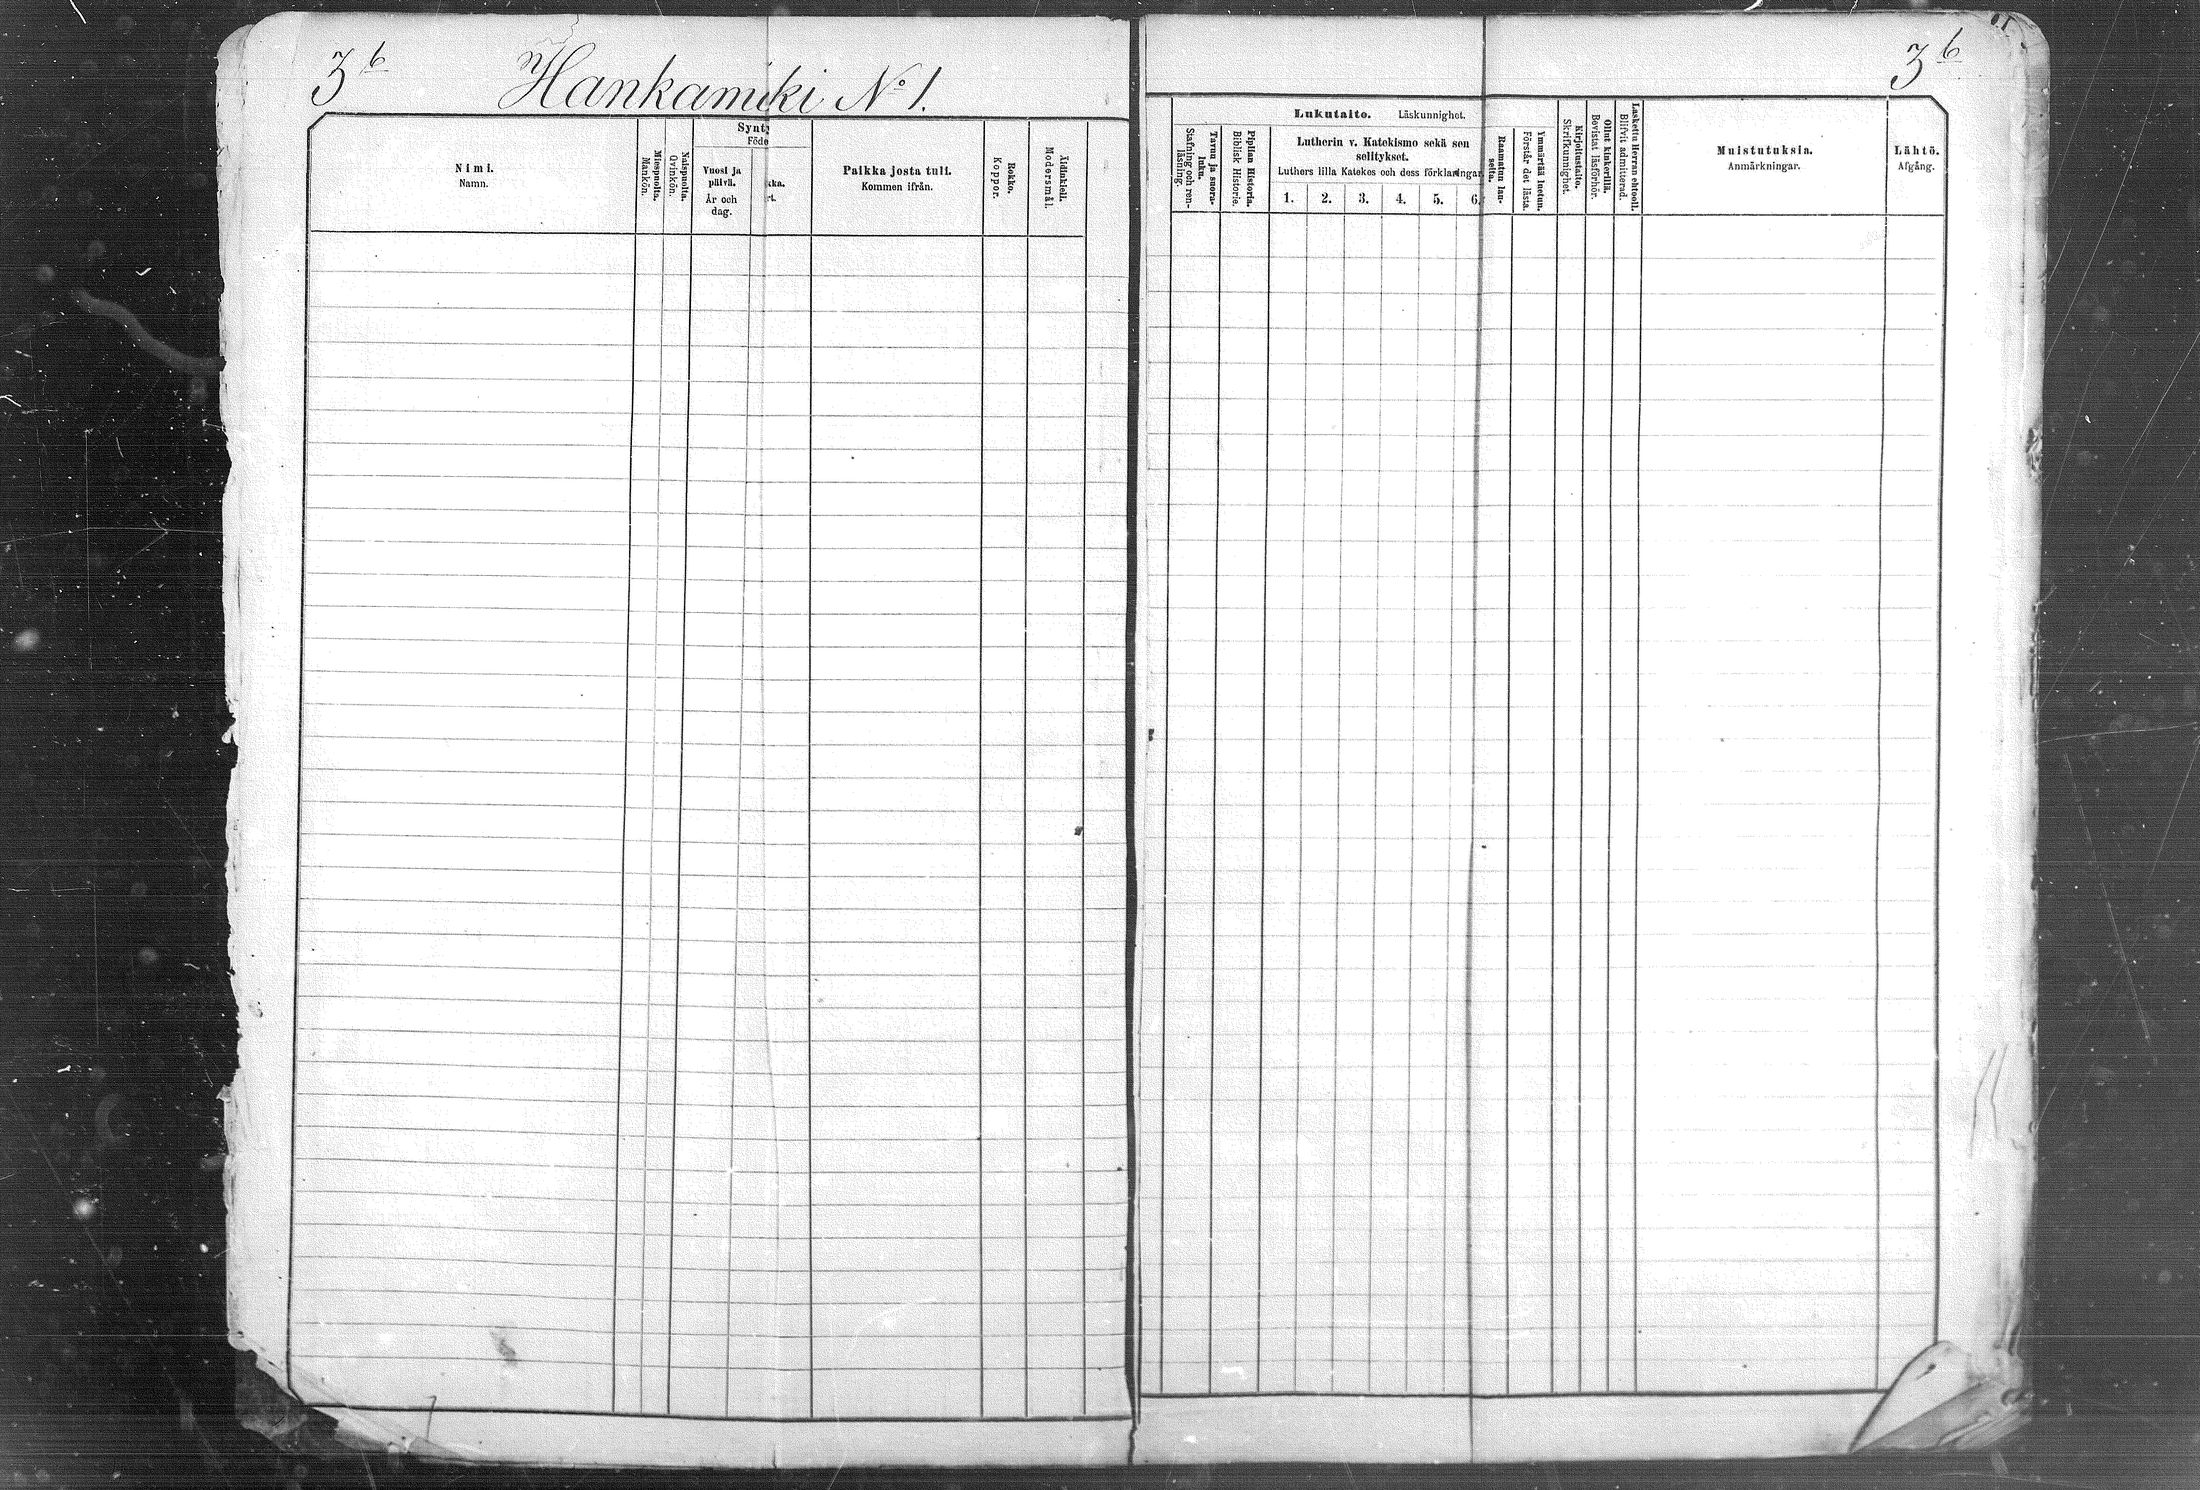 3b Hankamäki No 1.
Nimi.
Namn.
Miespuolta.
Mankön.
Naispuolta.
Qvinkön.
Synty
Föde
Vuosi ja
päivä.
År och
dag.
kka.
rt.
Paikka josta tuli.
Kommen ifrån.
Rokko.
Koppor.
Äidinkieli.
Modersmål.
3b
Lukutaito. Läskunnighet.
Tavuu ja suora-
luku.
Stafning och ren-
läsning.
Piplian Historia.
Biblisk Historie.
Lutherin v. Katekismo sekä sen
selitykset.
Luthers lilla Katekes och dess förklaringar
1. 2. 3. 4. 5. 6.
Raamatun lau-
seita.
Ymmärtää luetun.
Förstår det lästa.
Kirjoitustaito.
Skrifkunnighet.
Ollut kinkerillä.
Bevistat läsförhör.
Laskettu Herran ehtooll.
Blifvit admitterad.
Muistutuksia.
Anmärkningar.
Lähtö.
Afgång.